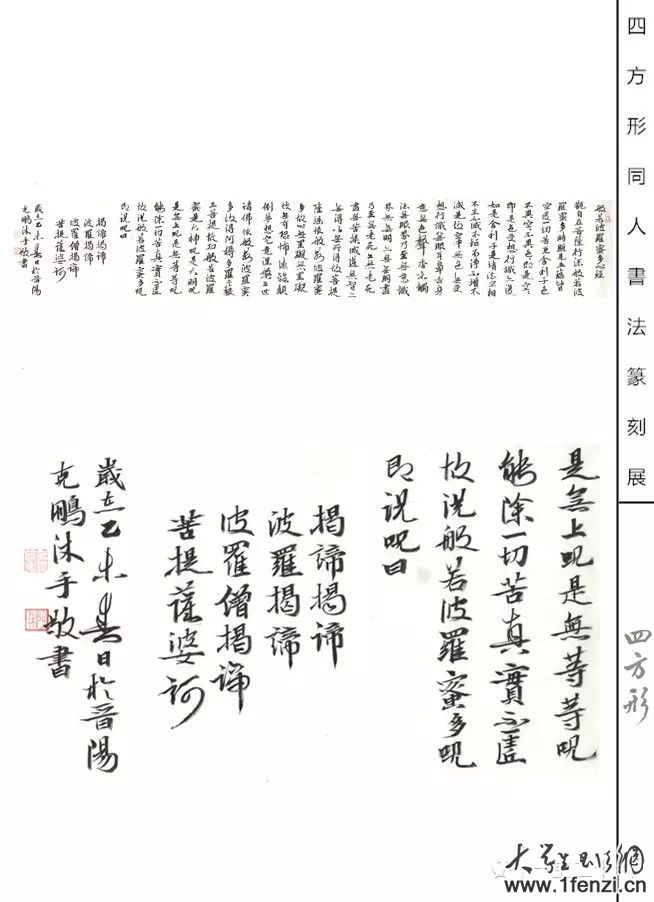 四方形同人書法篆刻展
般若波羅蜜多心經
觀自在菩薩行深般若波
羅蜜多時照見五蘊皆
空度一切苦厄舍利子色
不異空空不異色色即是空空
即是色受想行識亦復
如是舍利子是諸法空相
不生不滅不垢不淨不增不
減是故空中無色無受
想行識無眼耳鼻舌身
意無色聲香味觸
法無眼界乃至無意識
界無無明亦無無明盡
乃至無老死亦無老死
盡無苦集滅道無智亦
無得以無所得故菩提
薩埵依般若波羅蜜
多故心無罣礙無罣礙
故無有恐怖遠離顛
倒夢想究竟涅槃三世
諸佛依般若波羅蜜
多故得阿耨多羅三藐
三菩提故知般若波羅
蜜多是大神呪是大明呪
是無上呪是無等等呪
能除一切苦真實不虛
故說般若波羅蜜多呪
即說呪曰
揭諦揭諦
波羅揭諦
波羅僧揭諦
菩提薩婆訶
歲在乙未春日於晉陽
克鵬沐手敬書
是無上呪是無等等呪
能除一切苦真實不虛
故説般若波羅蜜多呪
即説呪曰
揭諦揭諦
波羅揭諦
波羅僧揭諦
菩提薩婆訶
歲在乙未春日於晉陽
克鵬沐手敬書
四方形
大學生書法網
www.1fenzi.cn